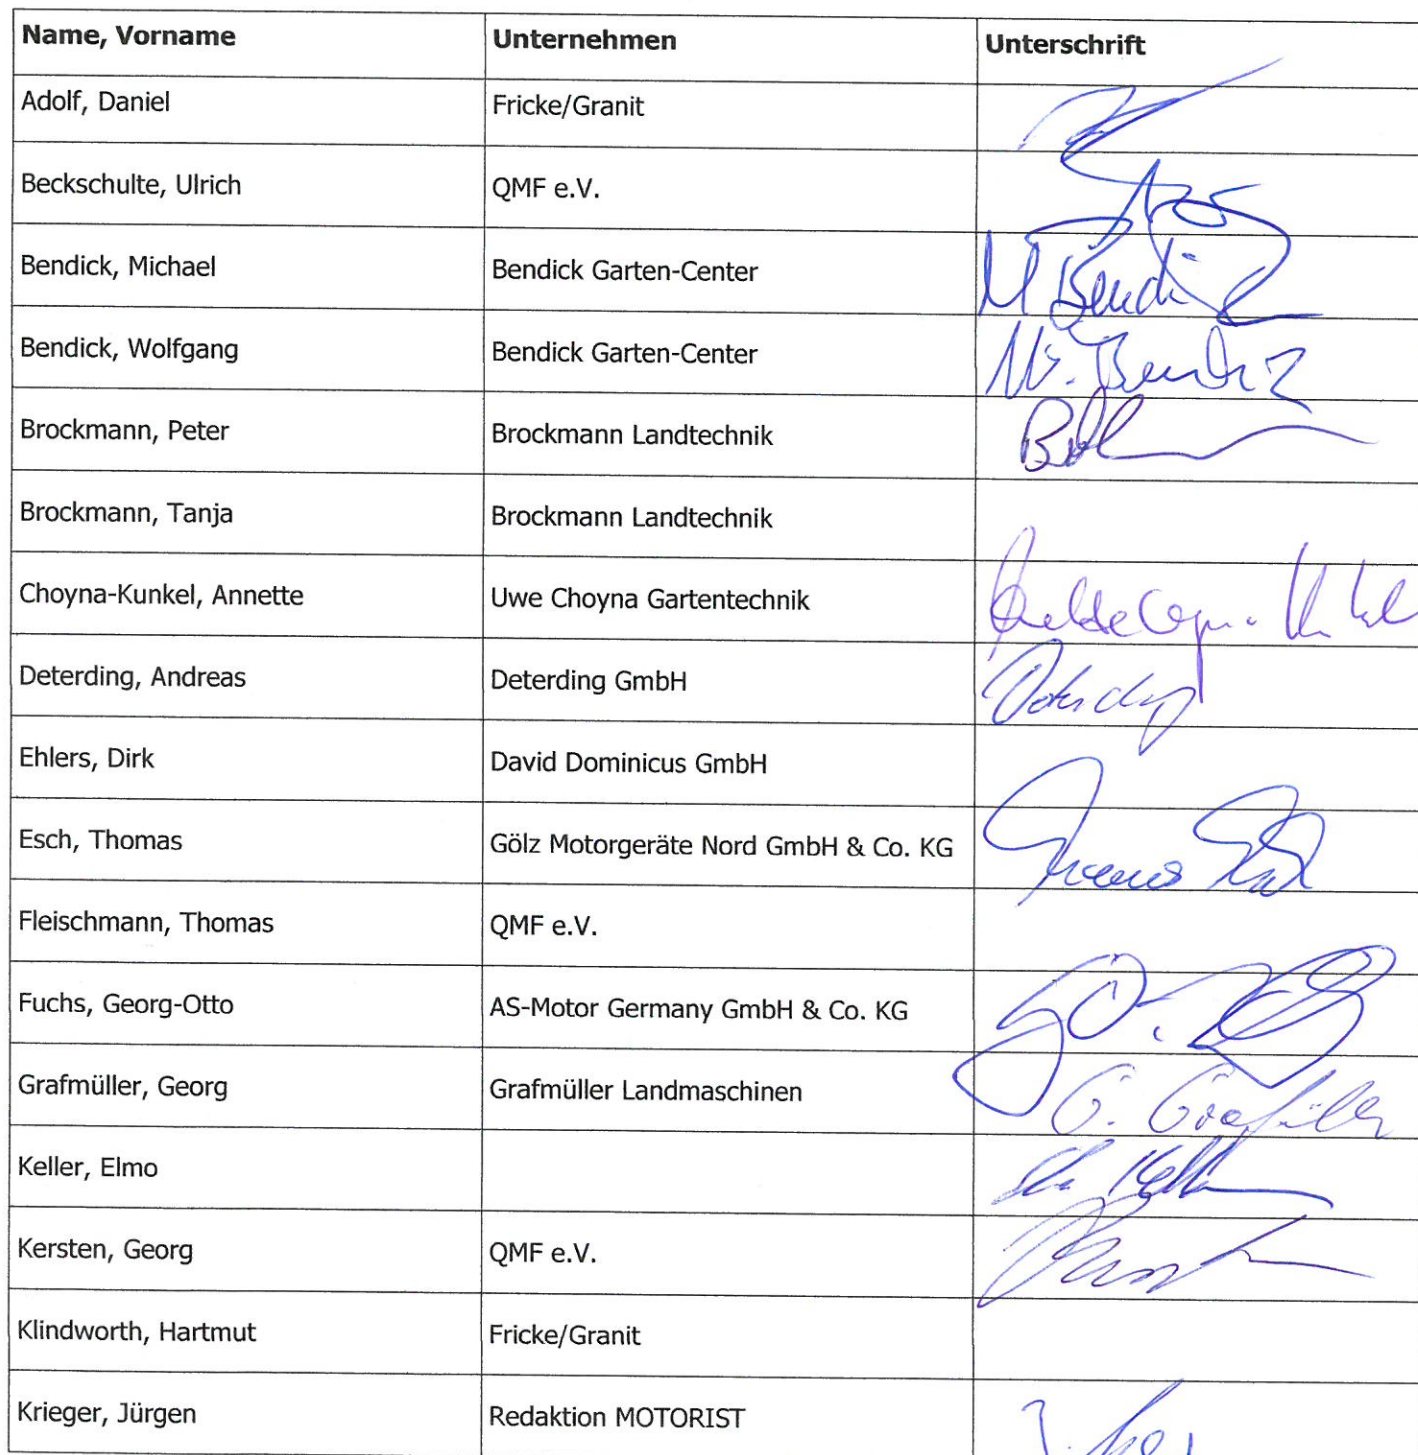 Name, Vorname Unternehmen Unterschrift
Adolf, Daniel Fricke/Granit
Beckschulte, Ulrich QMF e.V.
Bendick, Michael Bendick Garten-Center M Bendick
Bendick, Wolfgang Bendick Garten-Center W. Bendick
Brockmann, Peter Brockmann Landtechnik
Brockmann, Tanja Brockmann Landtechnik
Choyna-Kunkel, Annette Uwe Choyna Gartentechnik
Deterding, Andreas Deterding GmbH Deterding
Ehlers, Dirk David Dominicus GmbH
Esch, Thomas Gölz Motorgeräte Nord GmbH & Co. KG Thomas Esch
Fleischmann, Thomas QMF e.V.
Fuchs, Georg-Otto AS-Motor Germany GmbH & Co. KG
Grafmüller, Georg Grafmüller Landmaschinen G. Grafmüller
Keller, Elmo Keller
Kersten, Georg QMF e.V.
Klindworth, Hartmut Fricke/Granit
Krieger, Jürgen Redaktion MOTORIST